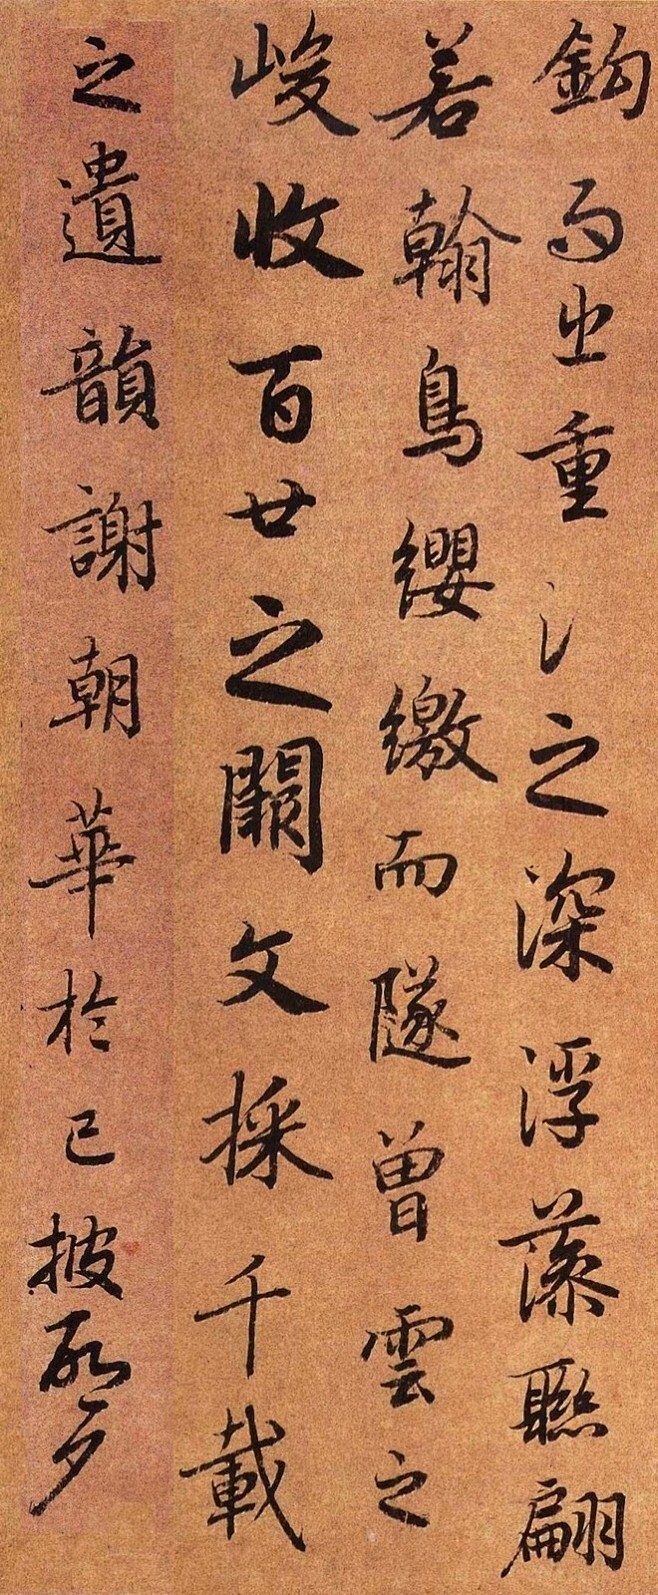 鈎而出重氵之深浮藻聯翩
若翰鳥纓繳而隧曾雲之
峻收百世之闕文採千載
之遺韻謝朝華於已披啓夕